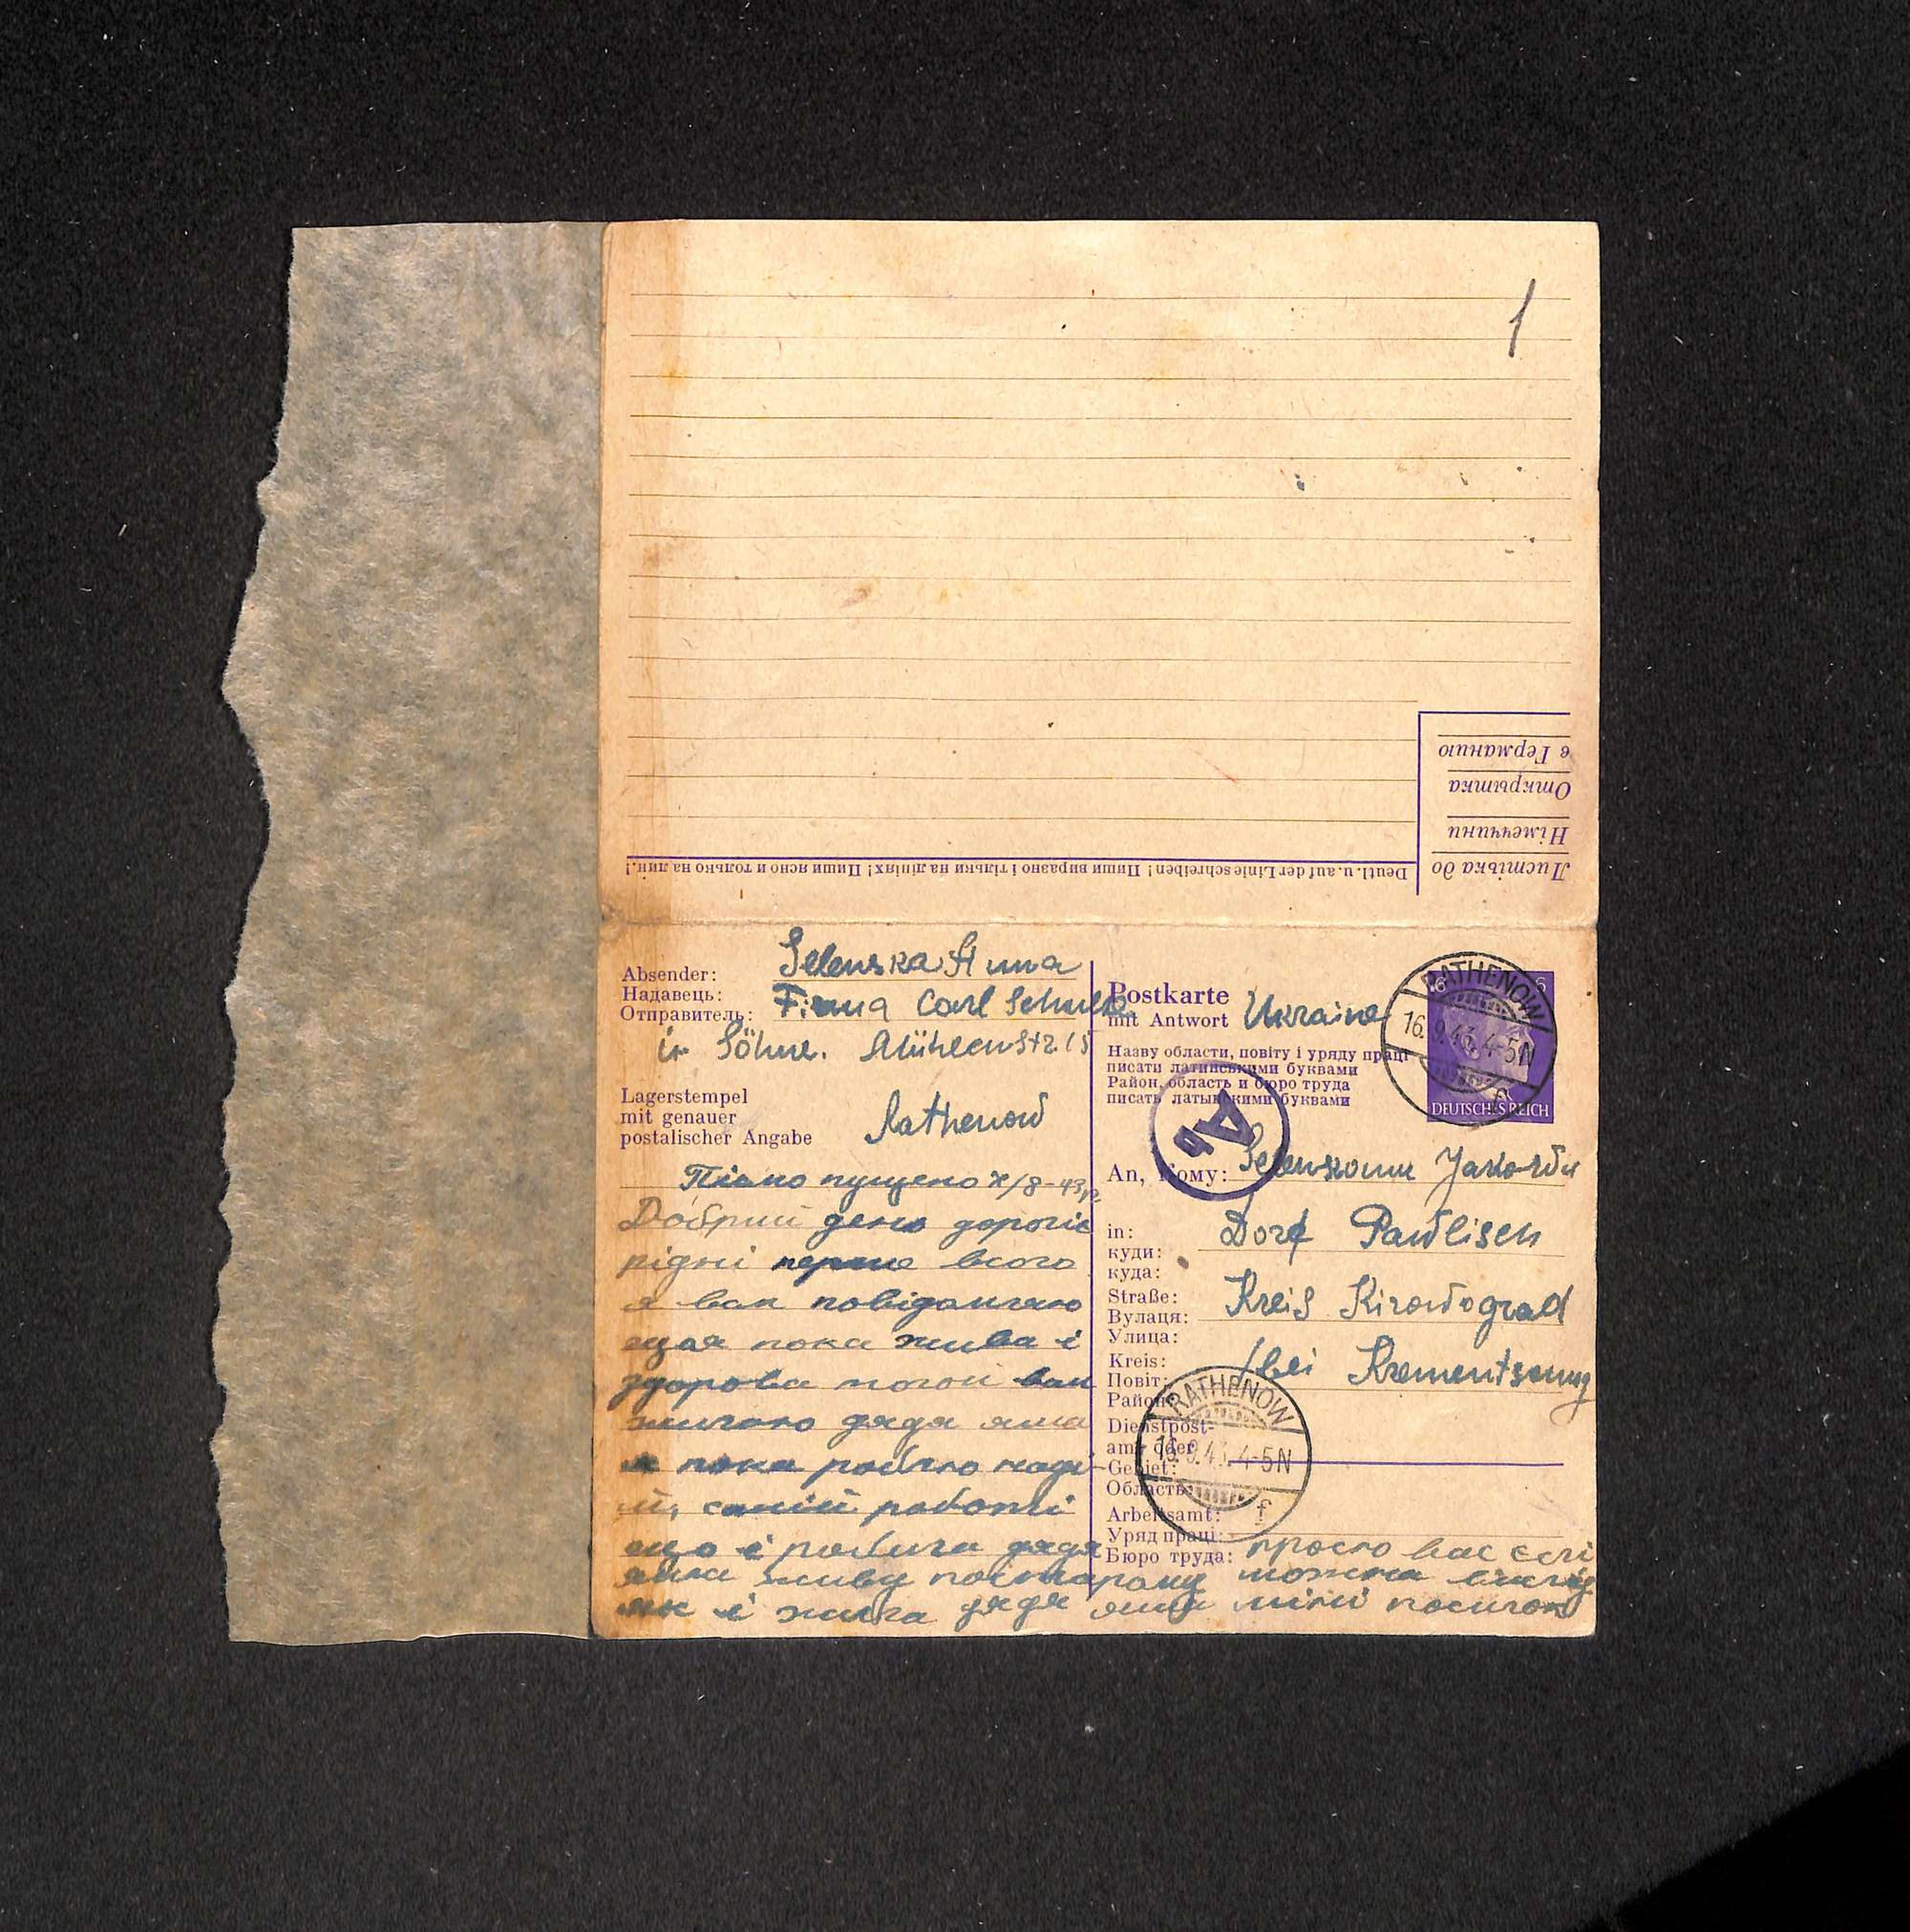 1
Листівка до
Німеччини
Открытка
в Германию
Deutl. u. auf der Linie schreiben! Пиши виразно і тільки на лініях! Пиши ясно и только на лин.!
Absender: Selenska Anna
Надавець: Firma Carl Schulze
Отправитель:
Söhne. Mühlenstr. 15
Lagerstempel
mit genauer
postalischer Angabe
Rathenow
Пісмо пущено 8-43р
Добрий день дорогіє
рідні перше всего
я вам повідомляю
щоя пока жива і
здорова того й вам
жилаю дядя яша
я пока роблю на
й, самій работі
що і робила дядя
яша живу постарому
як і жила дядя яша міні посилок
Postkarte
mit Antwort
Ukraine
Назву области, повіту і уряду праці
писати латинськими буквами
Район, область и бюро труда
писать латынскими буквами
RATHENOW
16.9.43.4-5N
f
6 6
DEUTSCHES REICH
A
An, Кому: Selenskomu Jakowu
in:
куди:
куда:
Dorf Pawlisch
Straße:
Вулаця:
Улица:
Kreis Kirowograd
Kreis:
Повіт:
Район:
bei Krementschug
RATHENOW
16.9.43.4-5N
f
Dienstpost-
amt oder
Gebiet:
Область:
Arbeitsamt:
Уряд праці:
Бюро труда:
прошо вас єслі
можна